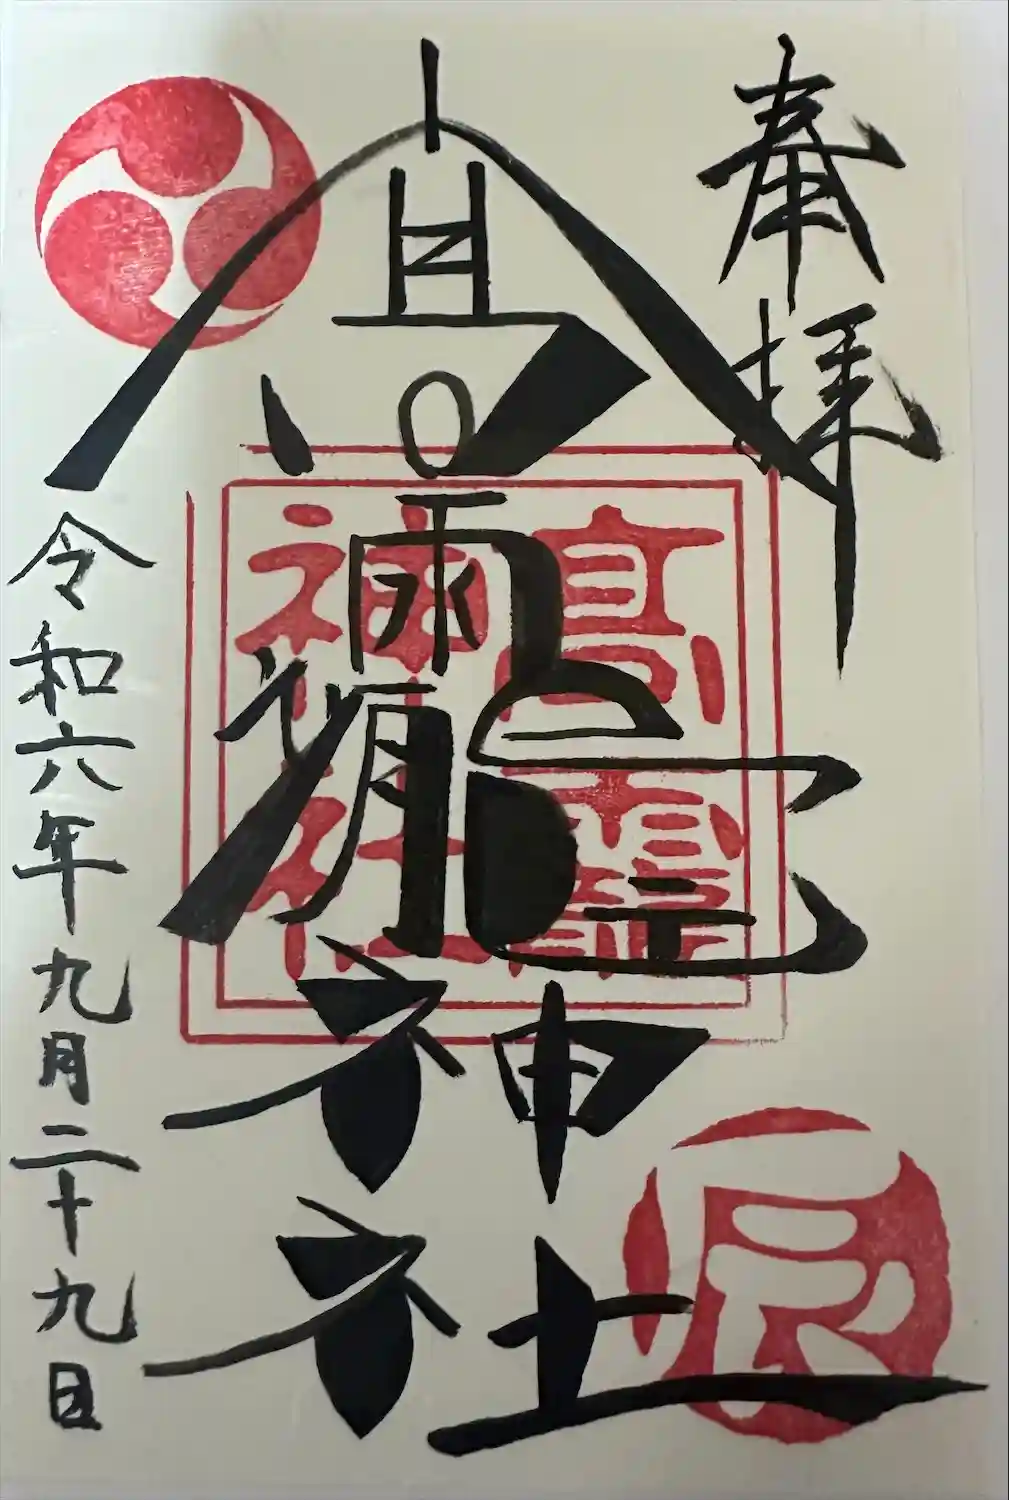 奉拝
髙龗神社
髙龗神社
辰
令和六年九月二十九日